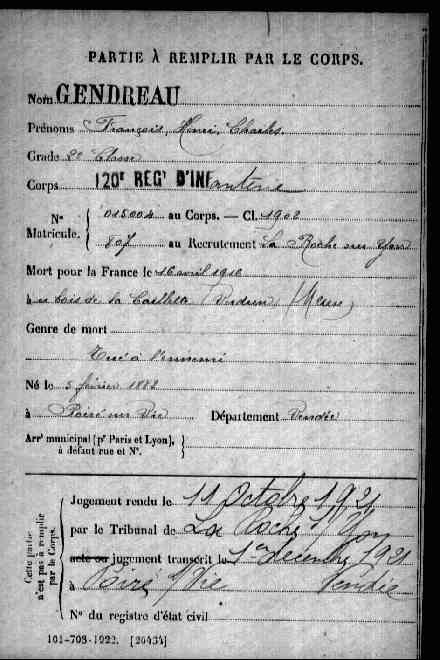 PARTIE À REMPLIR PAR LE CORPS.
Nom GENDREAU
Prénoms François, Henri, Charles.
Grade 2e Classe
Corps 120e REGt D'INFanterie
Nos Matricule. { 015004 au Corps. — Cl. 1902
807 au Recrutement La Roche sur Yon
Mort pour la France le 16 avril 1916
au bois de la Caillette Verdun (Meuse)
Genre de mort
Tué à l'ennemi
Né le 5 février 1882
à Poiré sur Vie Département Vendée
Arrt municipal (pr Paris et Lyon), à défaut rue et No. }
Cette partie n'est pas à remplir par le Corps.
Jugement rendu le 11 Octobre 1921
par le Tribunal de La Roche s/ Yon
acte ou jugement transcrit le 1er décembre 1921
à Poiré s/Vie Vendée
No du registre d'état civil
101-708-1922. [20434]